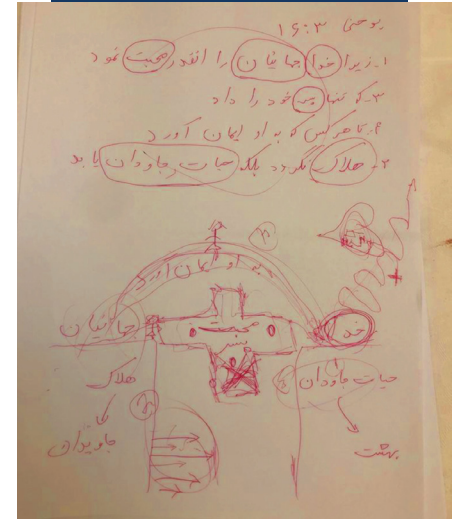 یوحنا ۱۶:۳
۱- زیرا خدا جهانیان را انقدر محبت نمود
۳- که تنها پسر خود را داد
۴- تا هر کس که به او ایمان آورد
۲- هلاک نگردد بلکه حیات جاودان یابد
۴
به او ایمان آورد
جهانیان
محبت
پسر
خدا
هلاک
حیات جاودان
جاویدان
بهشت